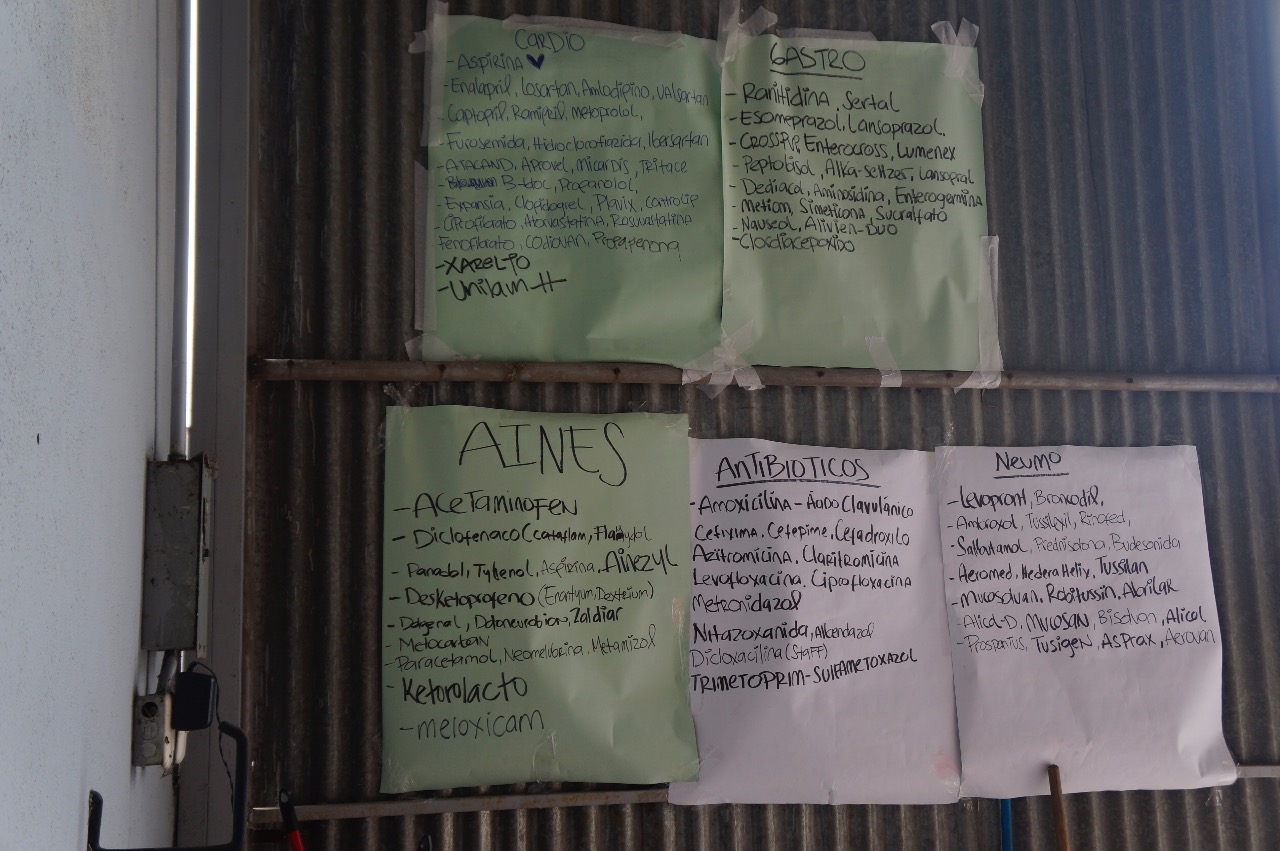 CARDIO
- Aspirina
- Enalapril, Losartan, Amlodipino, Valsartan
Captopril, Ramipril, Metoprolol,
- Furosemida, Hidroclorotiazida, Ibersartan
- ATACAND, Aprovel, Micardis, Tritace
- B-bloc, Propanolol,
- Expansia, Clopidogrel, Plavix, Controlip
Ciprofibrato, Atorvastatina, Rosuvastatina
Fenofibrato, Codiovan, Propafenona
- XARELTO
- Unilam-H
GASTRO
- Ranitidina, Sertal
- Esomeprazol, Lansoprazol,
- CROSSPVP, Enterocross, Lumenex
- Peptobisol, Alka-seltzer, Lansopral
- Dediacol, Aminosidina, Enterogermina
- Metiom, Simeticona, Sucralfato
- Nauseol, Alivien-DUO
- Clordiacepoxido
AINES
- ACetaminofen
- Diclofenaco (Cataflam,
- Panadol, Tylenol, Aspirina, Ainezyl
- Desketoprofeno (Enantyum, Dexterium)
- Dologenal, Doloneurobion, Zaldiar
- Metocarban
- Paracetamol, Neomelubrina, Metamizol
- Ketorolacto
- meloxicam
ANTIBIOTICOS
- Amoxicilina - Ácido Clavulánico
Cefixima, Cefepime, Cefadroxilo
Azitromicina, Claritromicina
Levofloxacina, Ciprofloxacina
Metronidazol
Nitazoxanida, Albendazol
Dicloxacilina (STAFF)
TRIMETOPRIM-SULFAMETOXAZOL
NEUMO
- Levopront, Broncodil,
- Ambroxol, Tussilexil, Rinofed,
- Salbutamol, Prednisolona, Budesonida
- Aeromed, Hedera Helix, Tussilan
- Mucosolvan, Robitussin, Abrilar
- Alicol-D, MUCOSAN, Bisolvon, Alicol
- Prospanius, Tusigen, ASPRAX, Aerovan